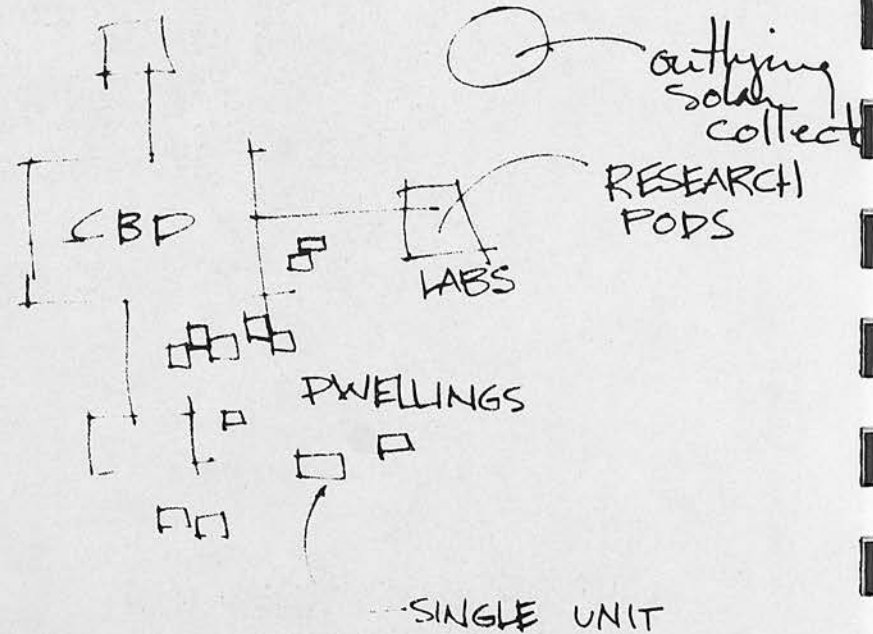 outlying
solar
collect
RESEARCH
PODS
CBD
LABS
DWELLINGS
SINGLE UNIT